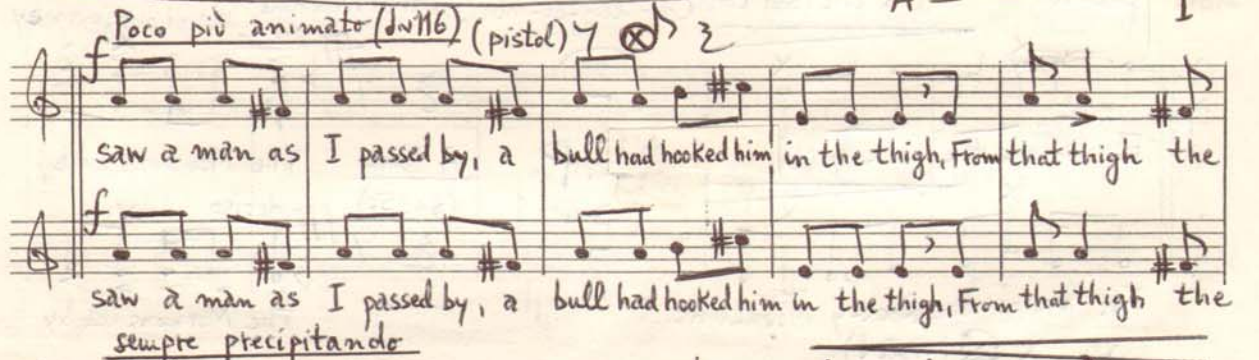 Poco più animato (♩~116) (pistol)
f
saw a man as I passed by, a bull had hooked him in the thigh, From that thigh the
f
saw a man as I passed by, a bull had hooked him in the thigh, From that thigh the
sempre precipitando